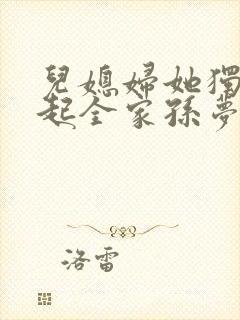 兒媳婦她獨
起全家孫夢
洛雷